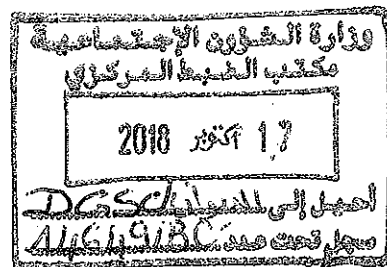 وزارة الشؤون الإجتماعية
مكتب الضبط المركزي
17 أكتوبر 2018
أحيل إلى الديوان DGSC
سجل تحت عدد 14649/BC